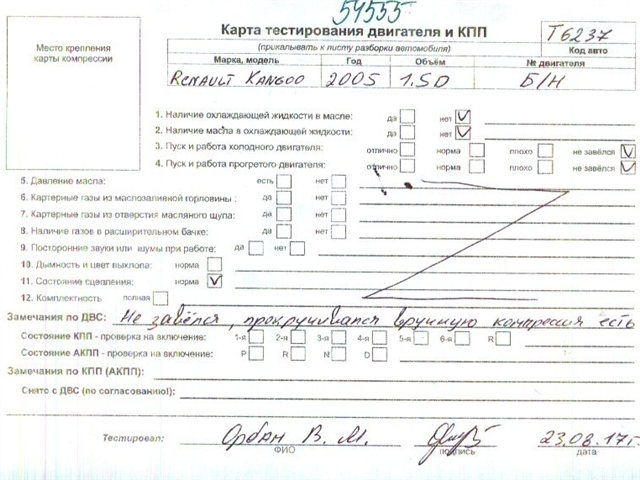 54555
Карта тестирования двигателя и КПП
(прикалывать к листу разборки автомобиля)
Т6237
Код авто
Место крепления
карты компрессии
Марка, модель Год Объём № двигателя
RENAULT KANGOO 2005 1.5D Б/Н
1. Наличие охлаждающей жидкости в масле: да нет
2. Наличие масла в охлаждающей жидкости: да нет
3. Пуск и работа холодного двигателя: отлично норма плохо не завёлся
4. Пуск и работа прогретого двигателя: отлично норма плохо не завёлся
5. Давление масла: есть нет
6. Картерные газы из маслозаливной горловины : да нет
7. Картерные газы из отверстия масляного щупа: да нет
8. Наличие газов в расширительном бачке: да нет
9. Посторонние звуки или шумы при работе: да нет
10. Дымность и цвет выхлопа: норма
11. Состояние сцепления: норма
12. Комплектность полная
Замечания по ДВС: Не завёлся, прокручивался вручную компрессия есть
Состояние КПП - проверка на включение: 1-я 2-я 3-я 4-я 5-я 6-я R
Состояние АКПП - проверка на включение: P R N D
Замечания по КПП (АКПП):
Снято с ДВС (по согласованию!):
Тестировал: Орбан В. М. 23.08.17г.
ФИО подпись дата